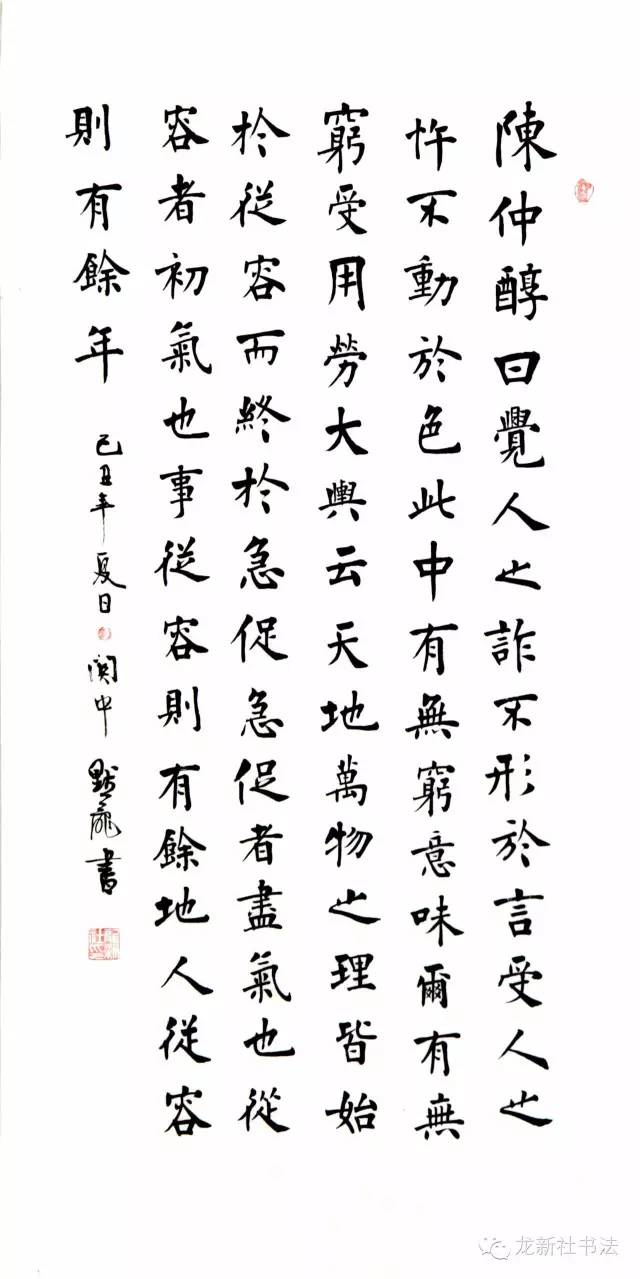 陳仲醇曰覺人之詐不形於言受人之
忤不動於色此中有無窮意味爾有無
窮受用勞大輿云天地萬物之理皆始
於從容而終於急促急促者盡氣也從
容者初氣也事從容則有餘地人從容
則有餘年
己丑年夏日関中默龐書
龙新社书法